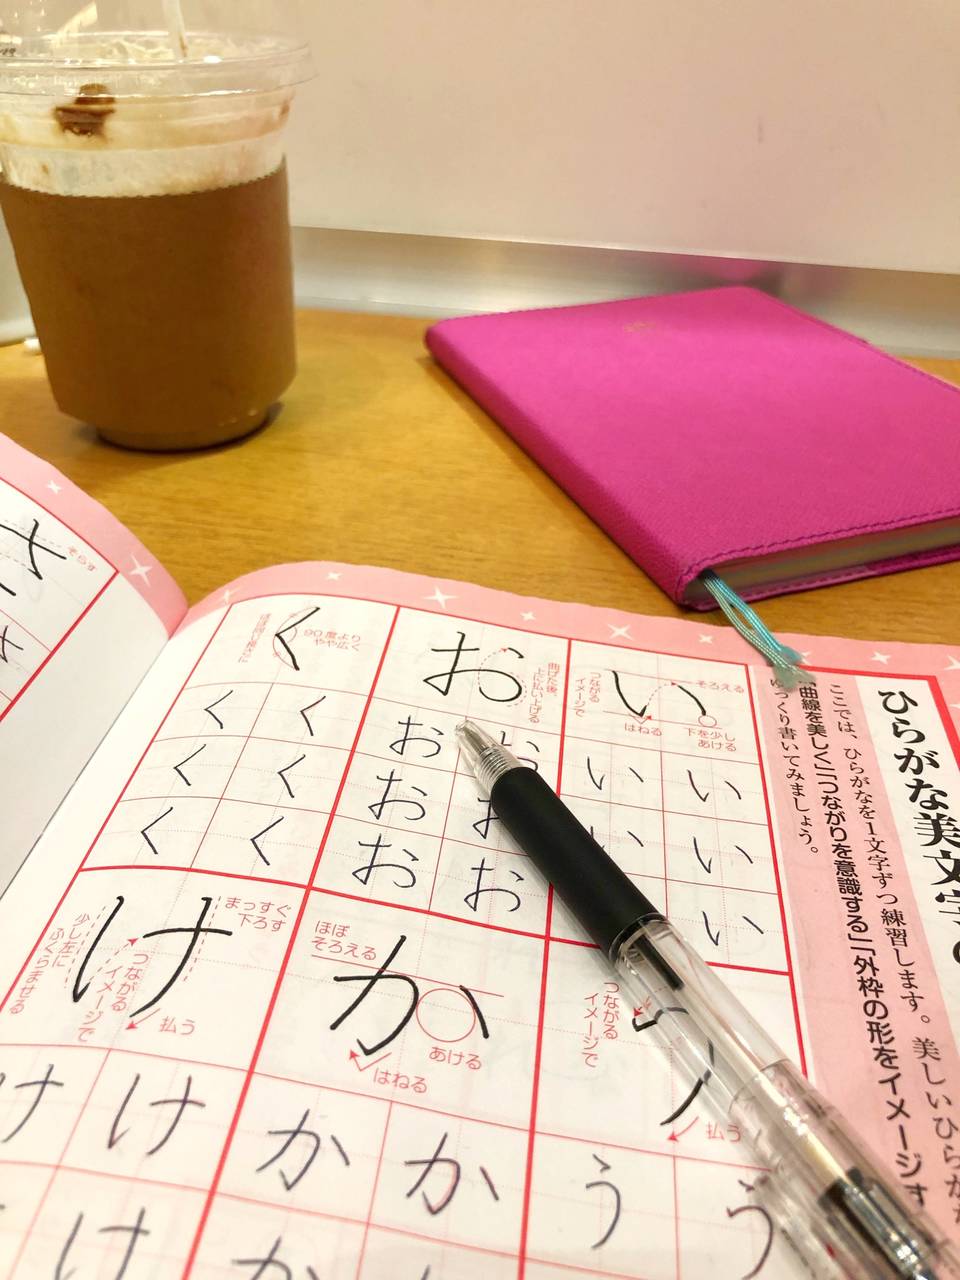 ひらがな美文字の
ここでは、ひらがなを1文字ずつ練習します。美しいひらがな
「曲線を美しく」「つながりを意識する」「外枠の形をイメージす
ゆっくり書いてみましょう。
い
つながる
イメージで
はねる
そろえる
下を少し
あける
い い
い い
い
お
曲げた後、
上に払い上げる
お お
お お
お お
く
90度より
やや広く
く く
く く
く く
う
つながる
イメージで
払う
う う
か
ほぼ
そろえる
はねる
あける
か か
か
け
少し左に
ふくらませる
つながる
イメージで
まっすぐ
下ろす
払う
け け
け
さ
そらす